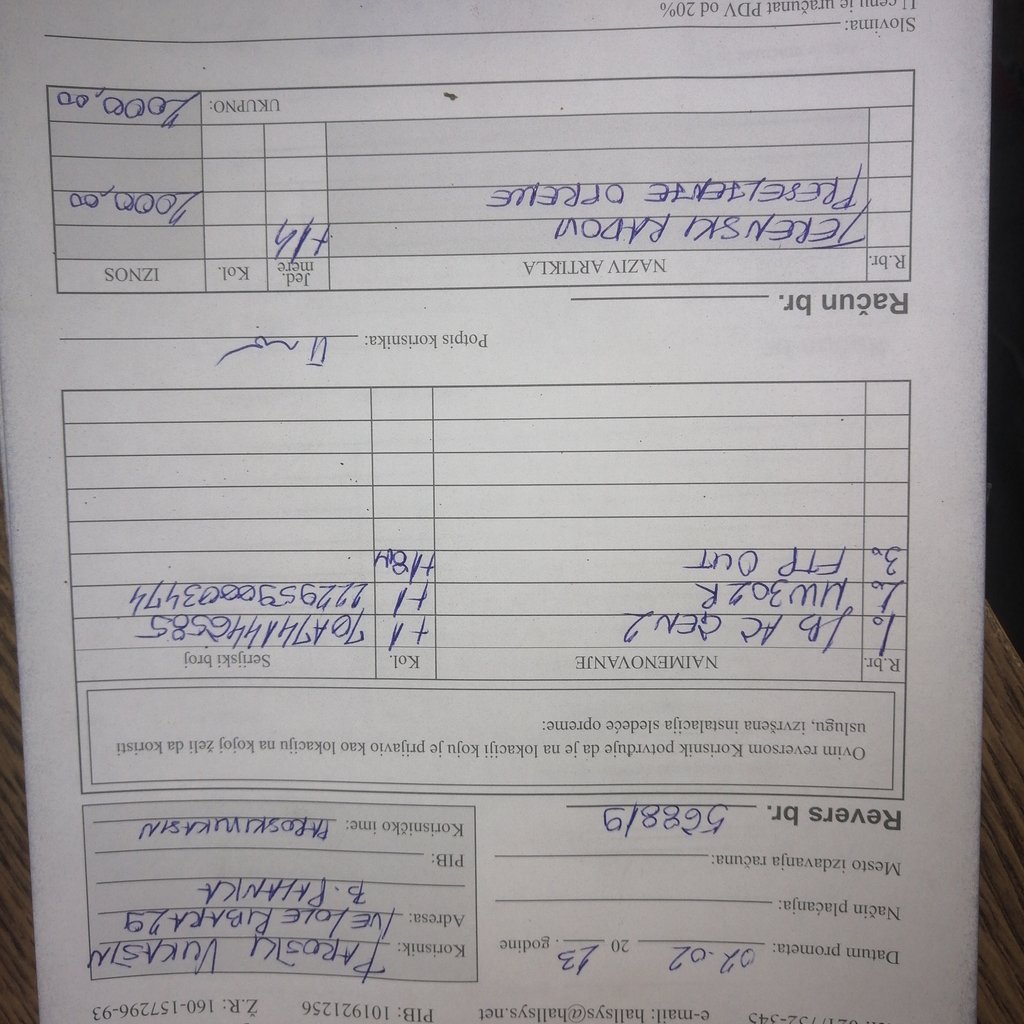 021/752-545 e-mail: hallsys@hallsys.net PIB: 101921256 Ž.R: 160-157296-93
Datum prometa: 02.02 20 23. godine
Način plaćanja:
Mesto izdavanja računa:
Korisnik: PAROŠKI VUKAŠIN
Adresa: IVE LOLE RIBARA 29
B. PALANKA
PIB:
Korisničko ime: PAROSKIVUKASIN
Revers br. 5688/9
Ovim reversom Korisnik potvrđuje da je na lokaciji koju je prijavio kao lokaciju na kojoj želi da koristi
uslugu, izvršena instalacija sledeće opreme:
R.br. NAIMENOVANJE Kol. Serijski broj
1. LB AC GEN2 +1 70A741446585
2. MW302R +1 2229590003474
3. FTP OUT +18M
Potpis korisnika:
Račun br.
R.br. NAZIV ARTIKLA Jed. mere Kol. IZNOS
TERENSKI RADOVI +1h
PRESELJENJE OPREME 2000,00
UKUPNO: 2000,00
Slovima:
U cenu je uračunat PDV od 20%